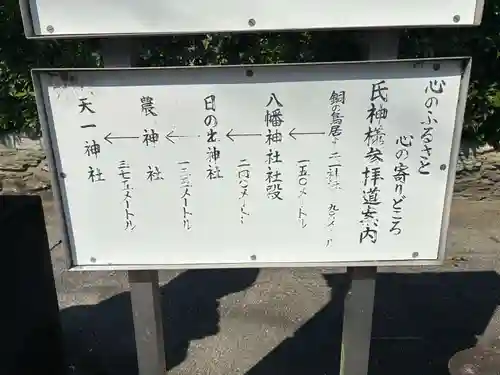 心のふるさと
心の寄りどころ
氏神様参拝道案内
銅の鳥居より二一社 九〇メートル
八幡神社社殿
一五〇メートル
日の出神社
二四〇メートル
農神社
一二五メートル
天一神社
三七五メートル